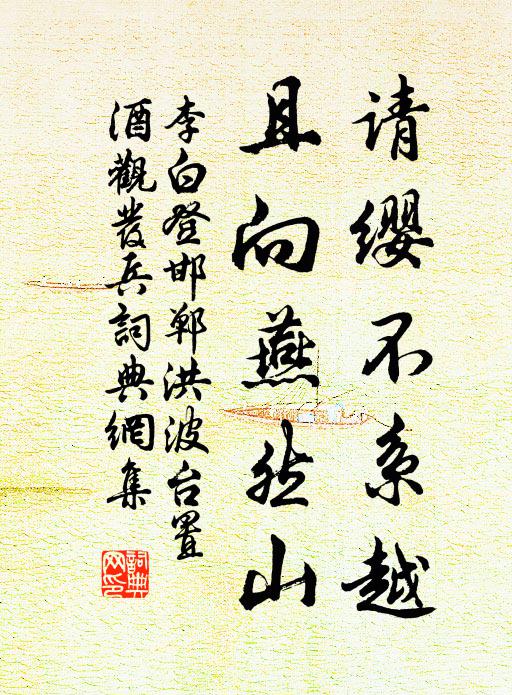 请缨不系越
且向燕然山
李白登邯郸洪波台置
酒觀发兵詞典網集
詞典
网印